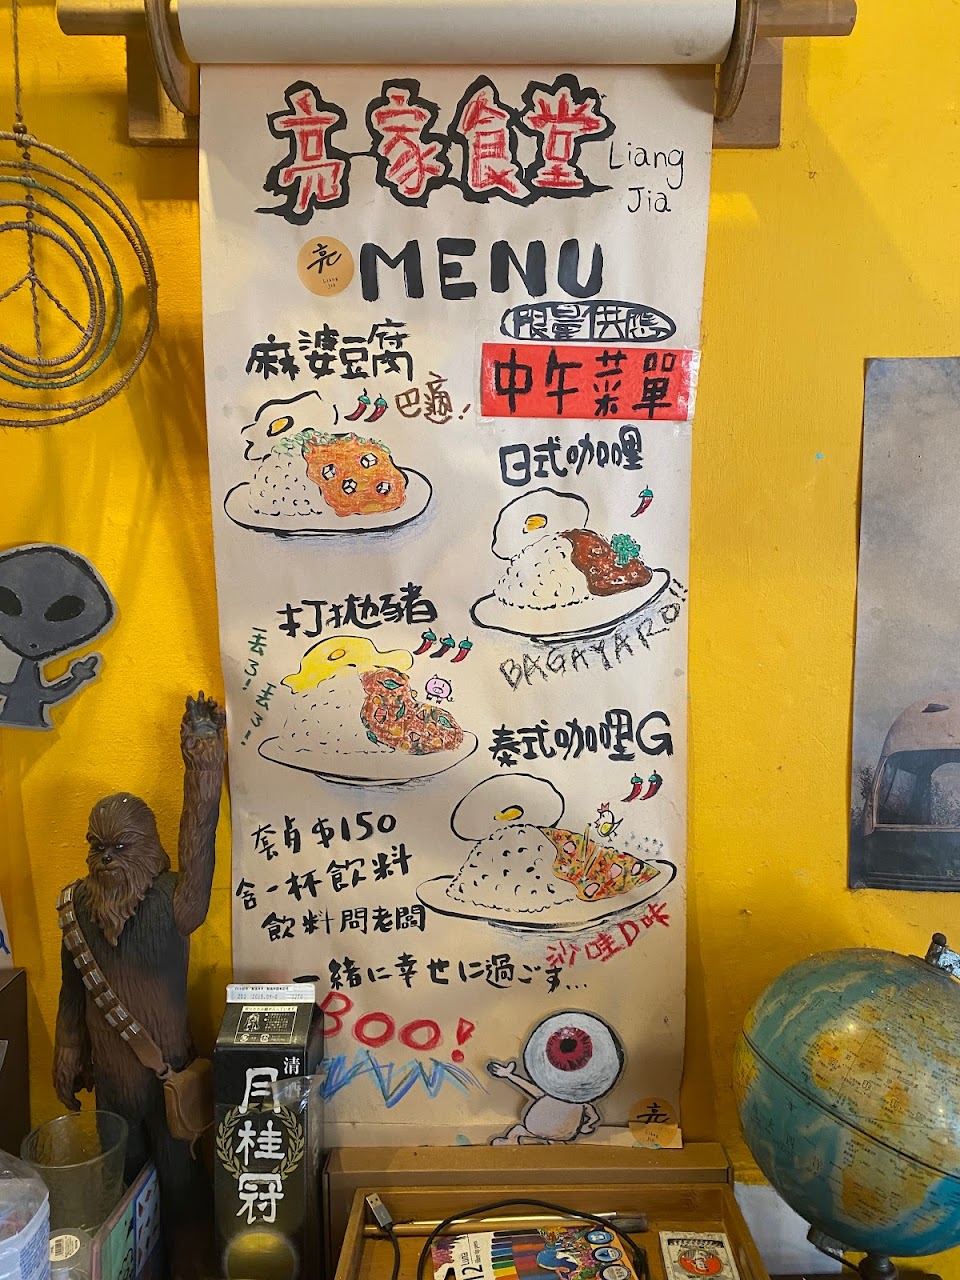 亮家食堂
Liang
Jia
亮
Liang
Jia
MENU
限量供應
中午菜單
麻婆豆腐
巴癒!
日式咖哩
BAGAYARO!!
打拋豬
去了!去了!
泰式咖哩G
沙哇D咔
套餐$150
含一杯飲料
飲料問老闆
一緒に幸せに過ごす...
BOO!
亮
Liang
Jia
清酒
月桂冠
12